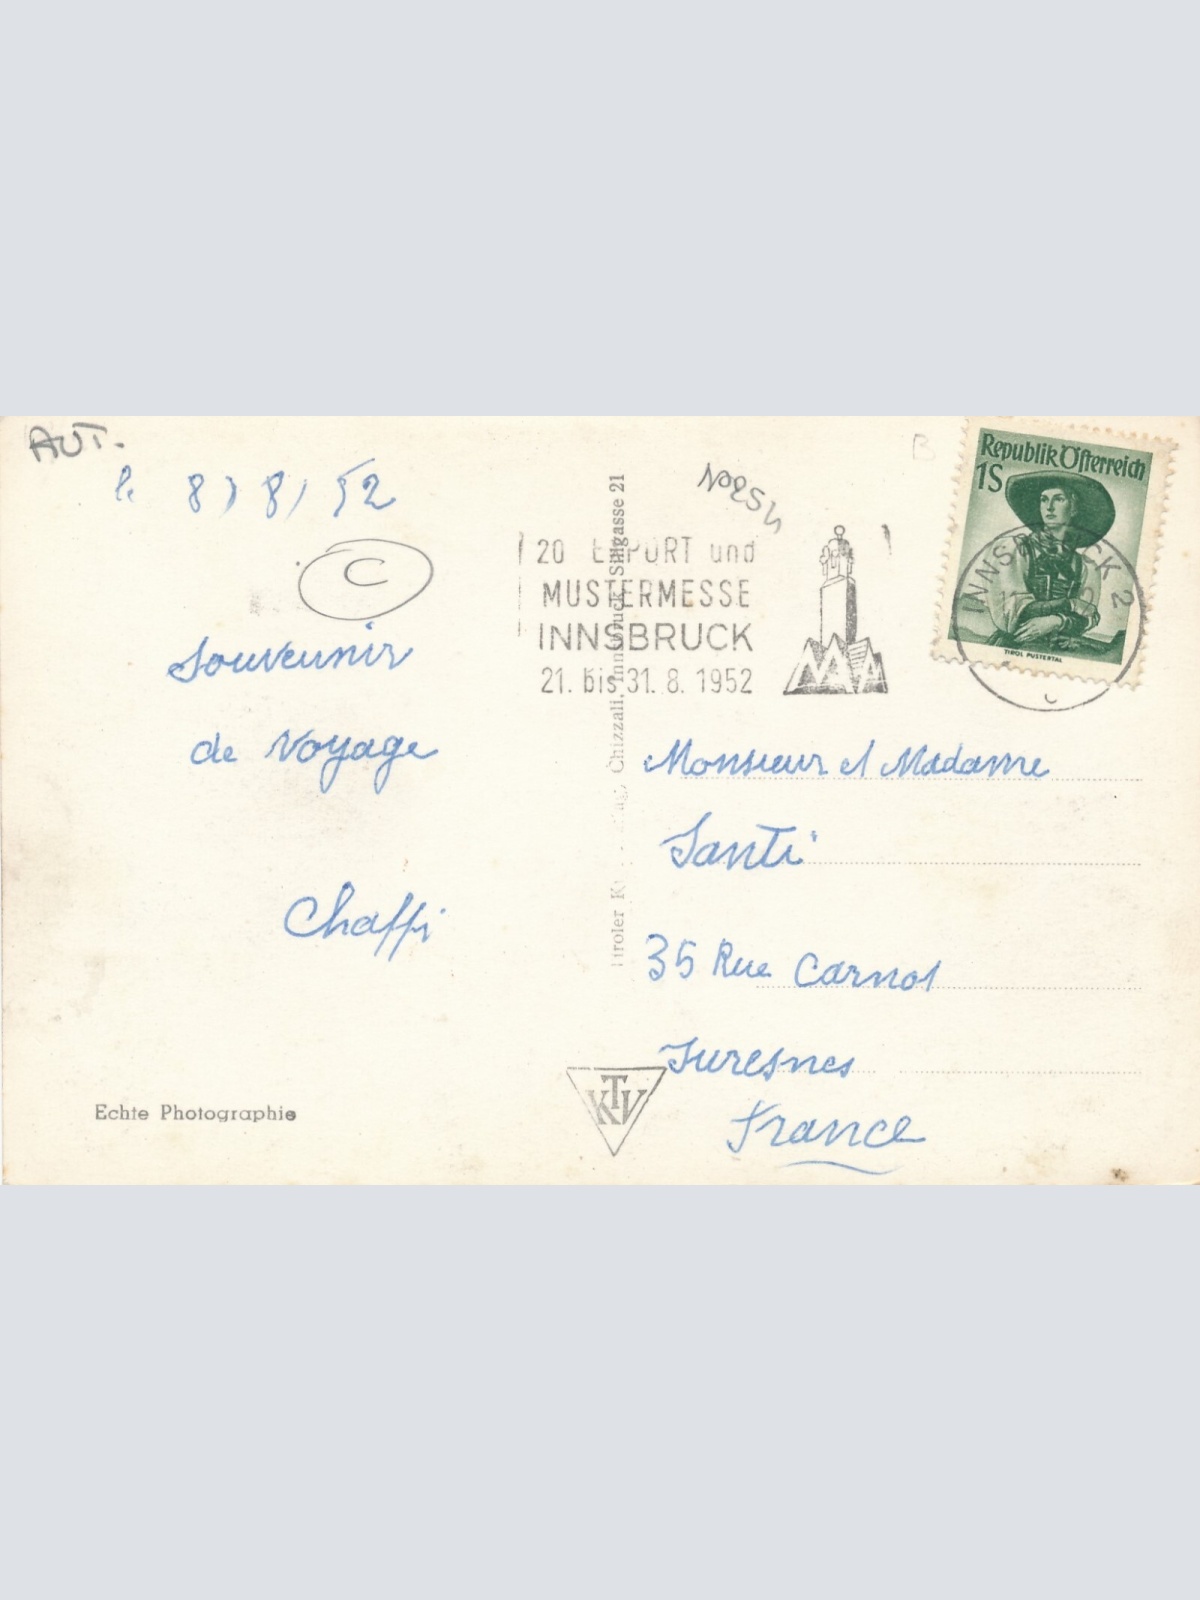 AUT.
le 8/8/52
C
Souvenir
de Voyage
Chaffi
Echte Photographie
20 EXPORT und
MUSTERMESSE
INNSBRUCK
21. bis 31. 8. 1952
Tiroler Chizzali, Innsbruck Sillgasse 21
B
Republik Österreich
1S
TIROL PUSTERTAL
INNSBRUCK 2
Monsieur et Madame
Santi
35 Rue Carnot
Suresnes
France
KTV